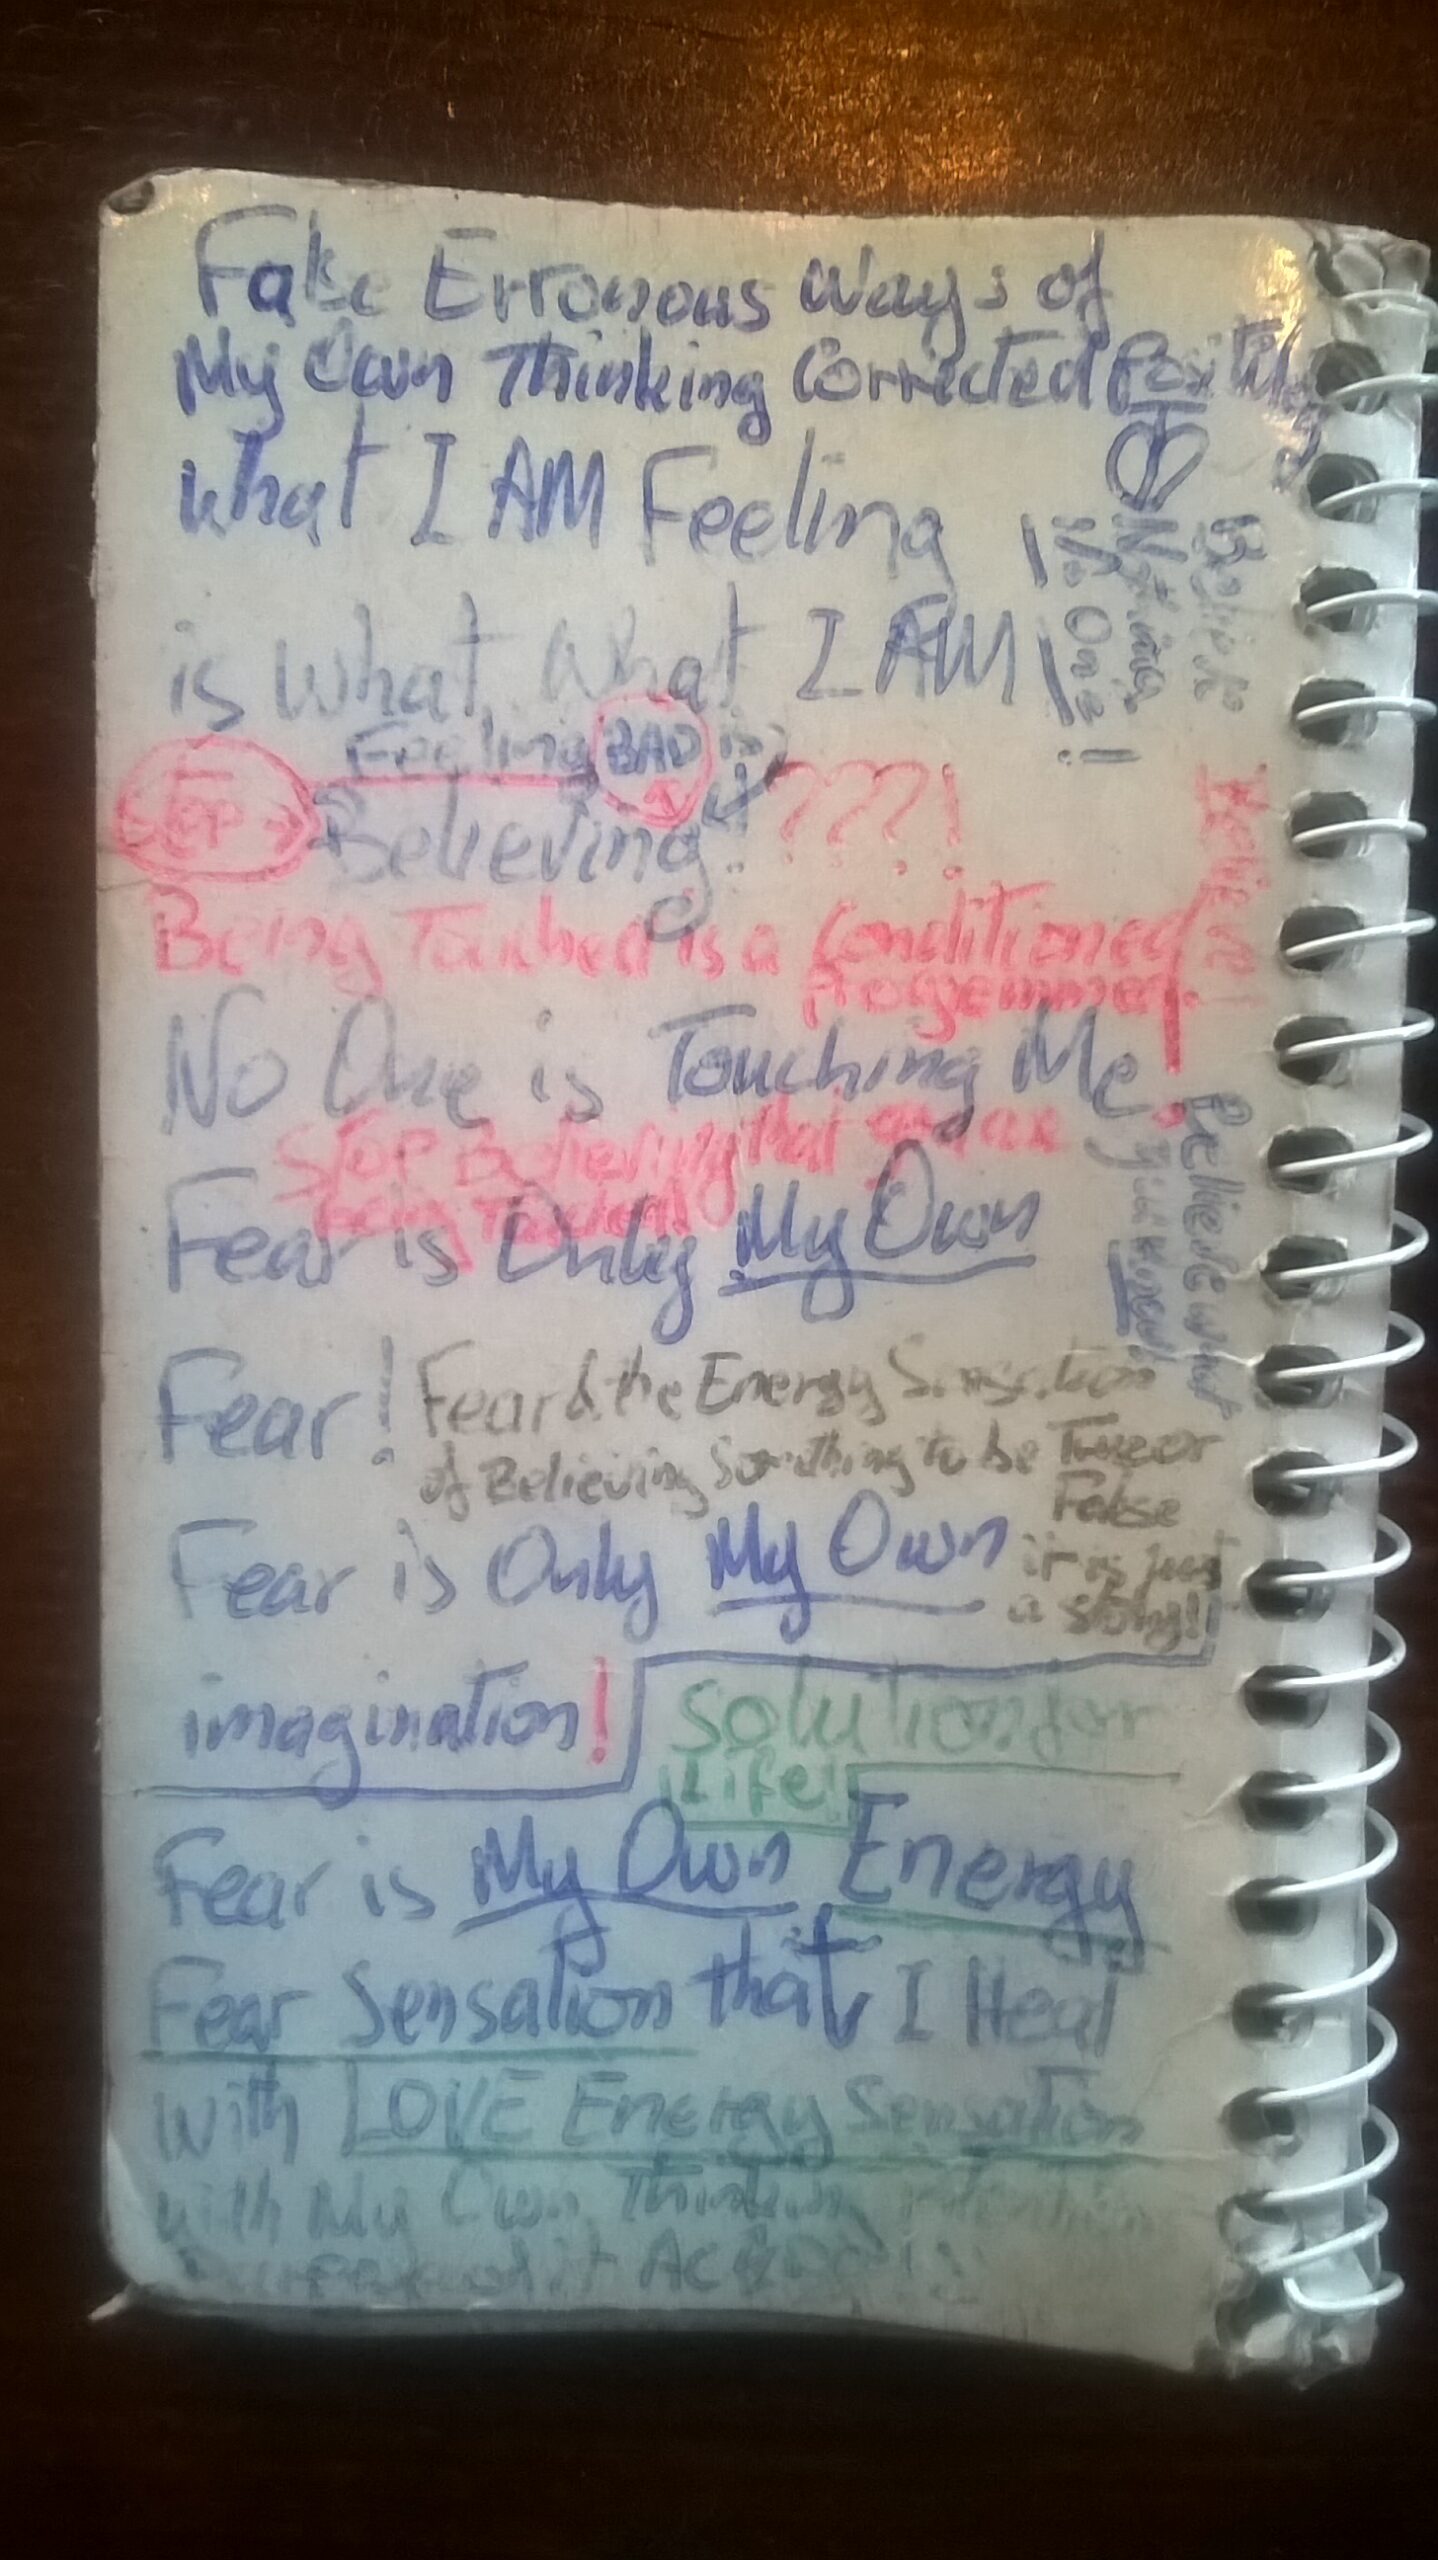 Fake Erronous Ways of
My Own Thinking Corrected
what I AM Feeling
is what what I AM
Feeling BAD is
STOP Believing! ???!
Being Touched is a Conditioned
No One is Touching Me
STOP Believing that
Fear is Only My Own
Fear! Fear & the Energy Sensation
of Believing Something to be True or
False
Fear is Only My Own
it is just
a story!!
imagination!
Solution for
Life!
Fear is My Own Energy
Fear Sensation that I Heal
with LOVE Energy Sensation
with My Own Thinking
No One!
Nothing
Believe
Believe what
you know!